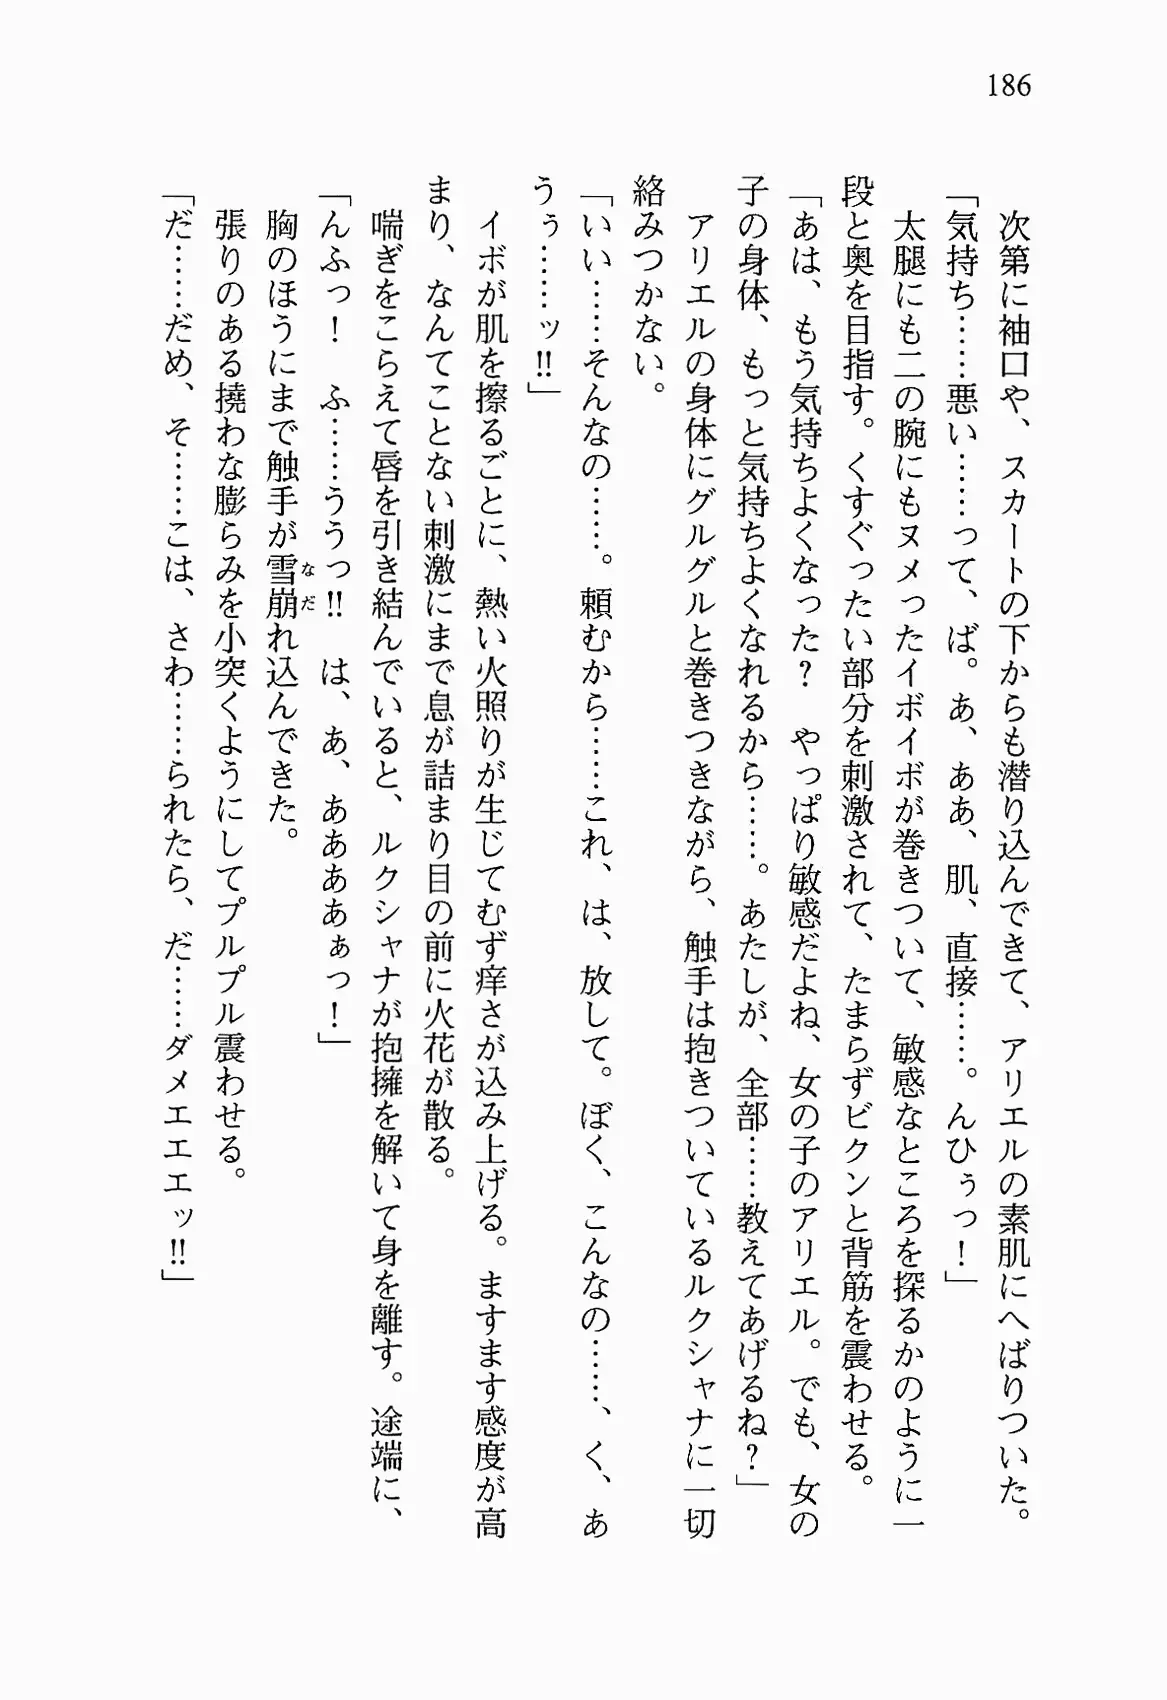 186
次第に袖口や、スカートの下からも潜り込んできて、アリエルの素肌にへばりついた。
「気持ち……悪い……って、ば。あ、ああ、肌、直接……。んひぅっ！」
太腿にも二の腕にもヌメったイボイボが巻きついて、敏感なところを探るかのように一
段と奥を目指す。くすぐったい部分を刺激されて、たまらずビクンと背筋を震わせる。
「あは、もう気持ちよくなった？　やっぱり敏感だよね、女の子のアリエル。でも、女の
子の身体、もっと気持ちよくなれるから……。あたしが、全部……教えてあげるね？」
アリエルの身体にグルグルと巻きつきながら、触手は抱きついているルクシャナに一切
絡みつかない。
「いい……そんなの……。頼むから……これ、は、放して。ぼく、こんなの……、く、あ
うぅ……ッ‼」
イボが肌を擦るごとに、熱い火照りが生じてむず痒さが込み上げる。ますます感度が高
まり、なんてことない刺激にまで息が詰まり目の前に火花が散る。
喘ぎをこらえて唇を引き結んでいると、ルクシャナが抱擁を解いて身を離す。途端に、
「んふっ！　ふ……ううっ‼　は、あ、ああああぁっ！」
胸のほうにまで触手が雪崩れ込んできた。
張りのある撓わな膨らみを小突くようにしてプルプル震わせる。
「だ……だめ、そ……こは、さわ……られたら、だ……ダメエエエッ‼」